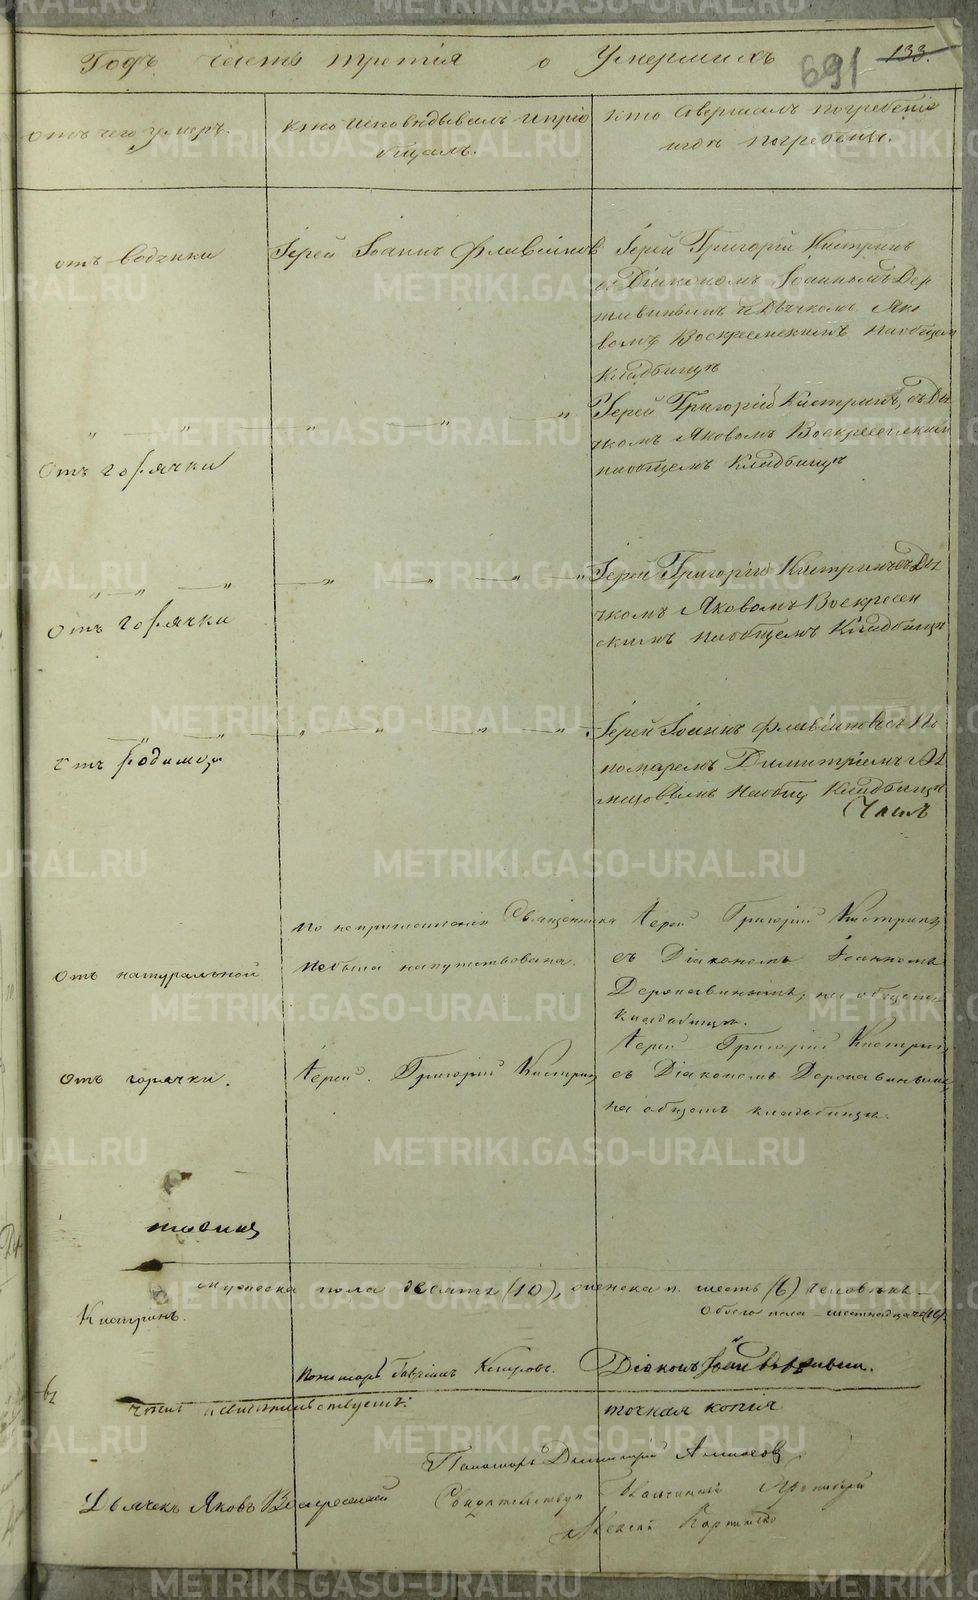 Годъ часть третiя о Умершихъ 691 133.
отъ чего умеръ.
кто исповѣдывалъ и прiо
бщалъ.
кто совершалъ погребенiе
и гдѣ погребены.
отъ водянки
Iерей Iоаннъ Флавiановъ
Iерей Григорiй Кистринъ
съ Дiакономъ Iоанномъ Дер
жавинымъ и Дьячкомъ Яко
вомъ Воскресенскимъ на общемъ
кладбищѣ
Отъ горячки
Iерей Григорiй Кистринъ, съ Дья
чкомъ Яковомъ Воскресенскимъ
на общемъ кладбищѣ
Отъ горячки
Iерей Григорiй Кистринъ съ Дья
чкомъ Яковомъ Воскресен
скимъ на общемъ кладбищѣ
Отъ родимца
Iерей Iоаннъ Флавiановъ съ По
номаремъ Димитрiемъ
на общ кладбищѣ
Отъ натуральной
По неприглашенiю Священника
не была напутствована.
Iерей Григорiй Кистринъ
съ Дiакономъ Iоанномъ
Державинымъ, на общемъ
кладбищѣ.
отъ горячки.
Iерей Григорiй Кистринъ
Iерей Григорiй Кистринъ
съ Дiакономъ Державинымъ
на общемъ кладбищѣ.
мужеска пола десять (10), женска п. шесть (6) человѣкъ
обоего пола шестнадцать (16).
Кистринъ.
Пономарь Гаврiилъ
Дiаконъ Iоаннъ Державинъ.
точная копiя
Пономарь Димитрiй
Дьячекъ Яковъ Воскресенскiй
METRIKI.GASO-URAL.RU